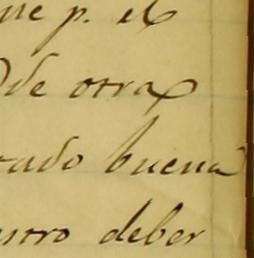 ue p. el
de otra
tado buena
estro deber